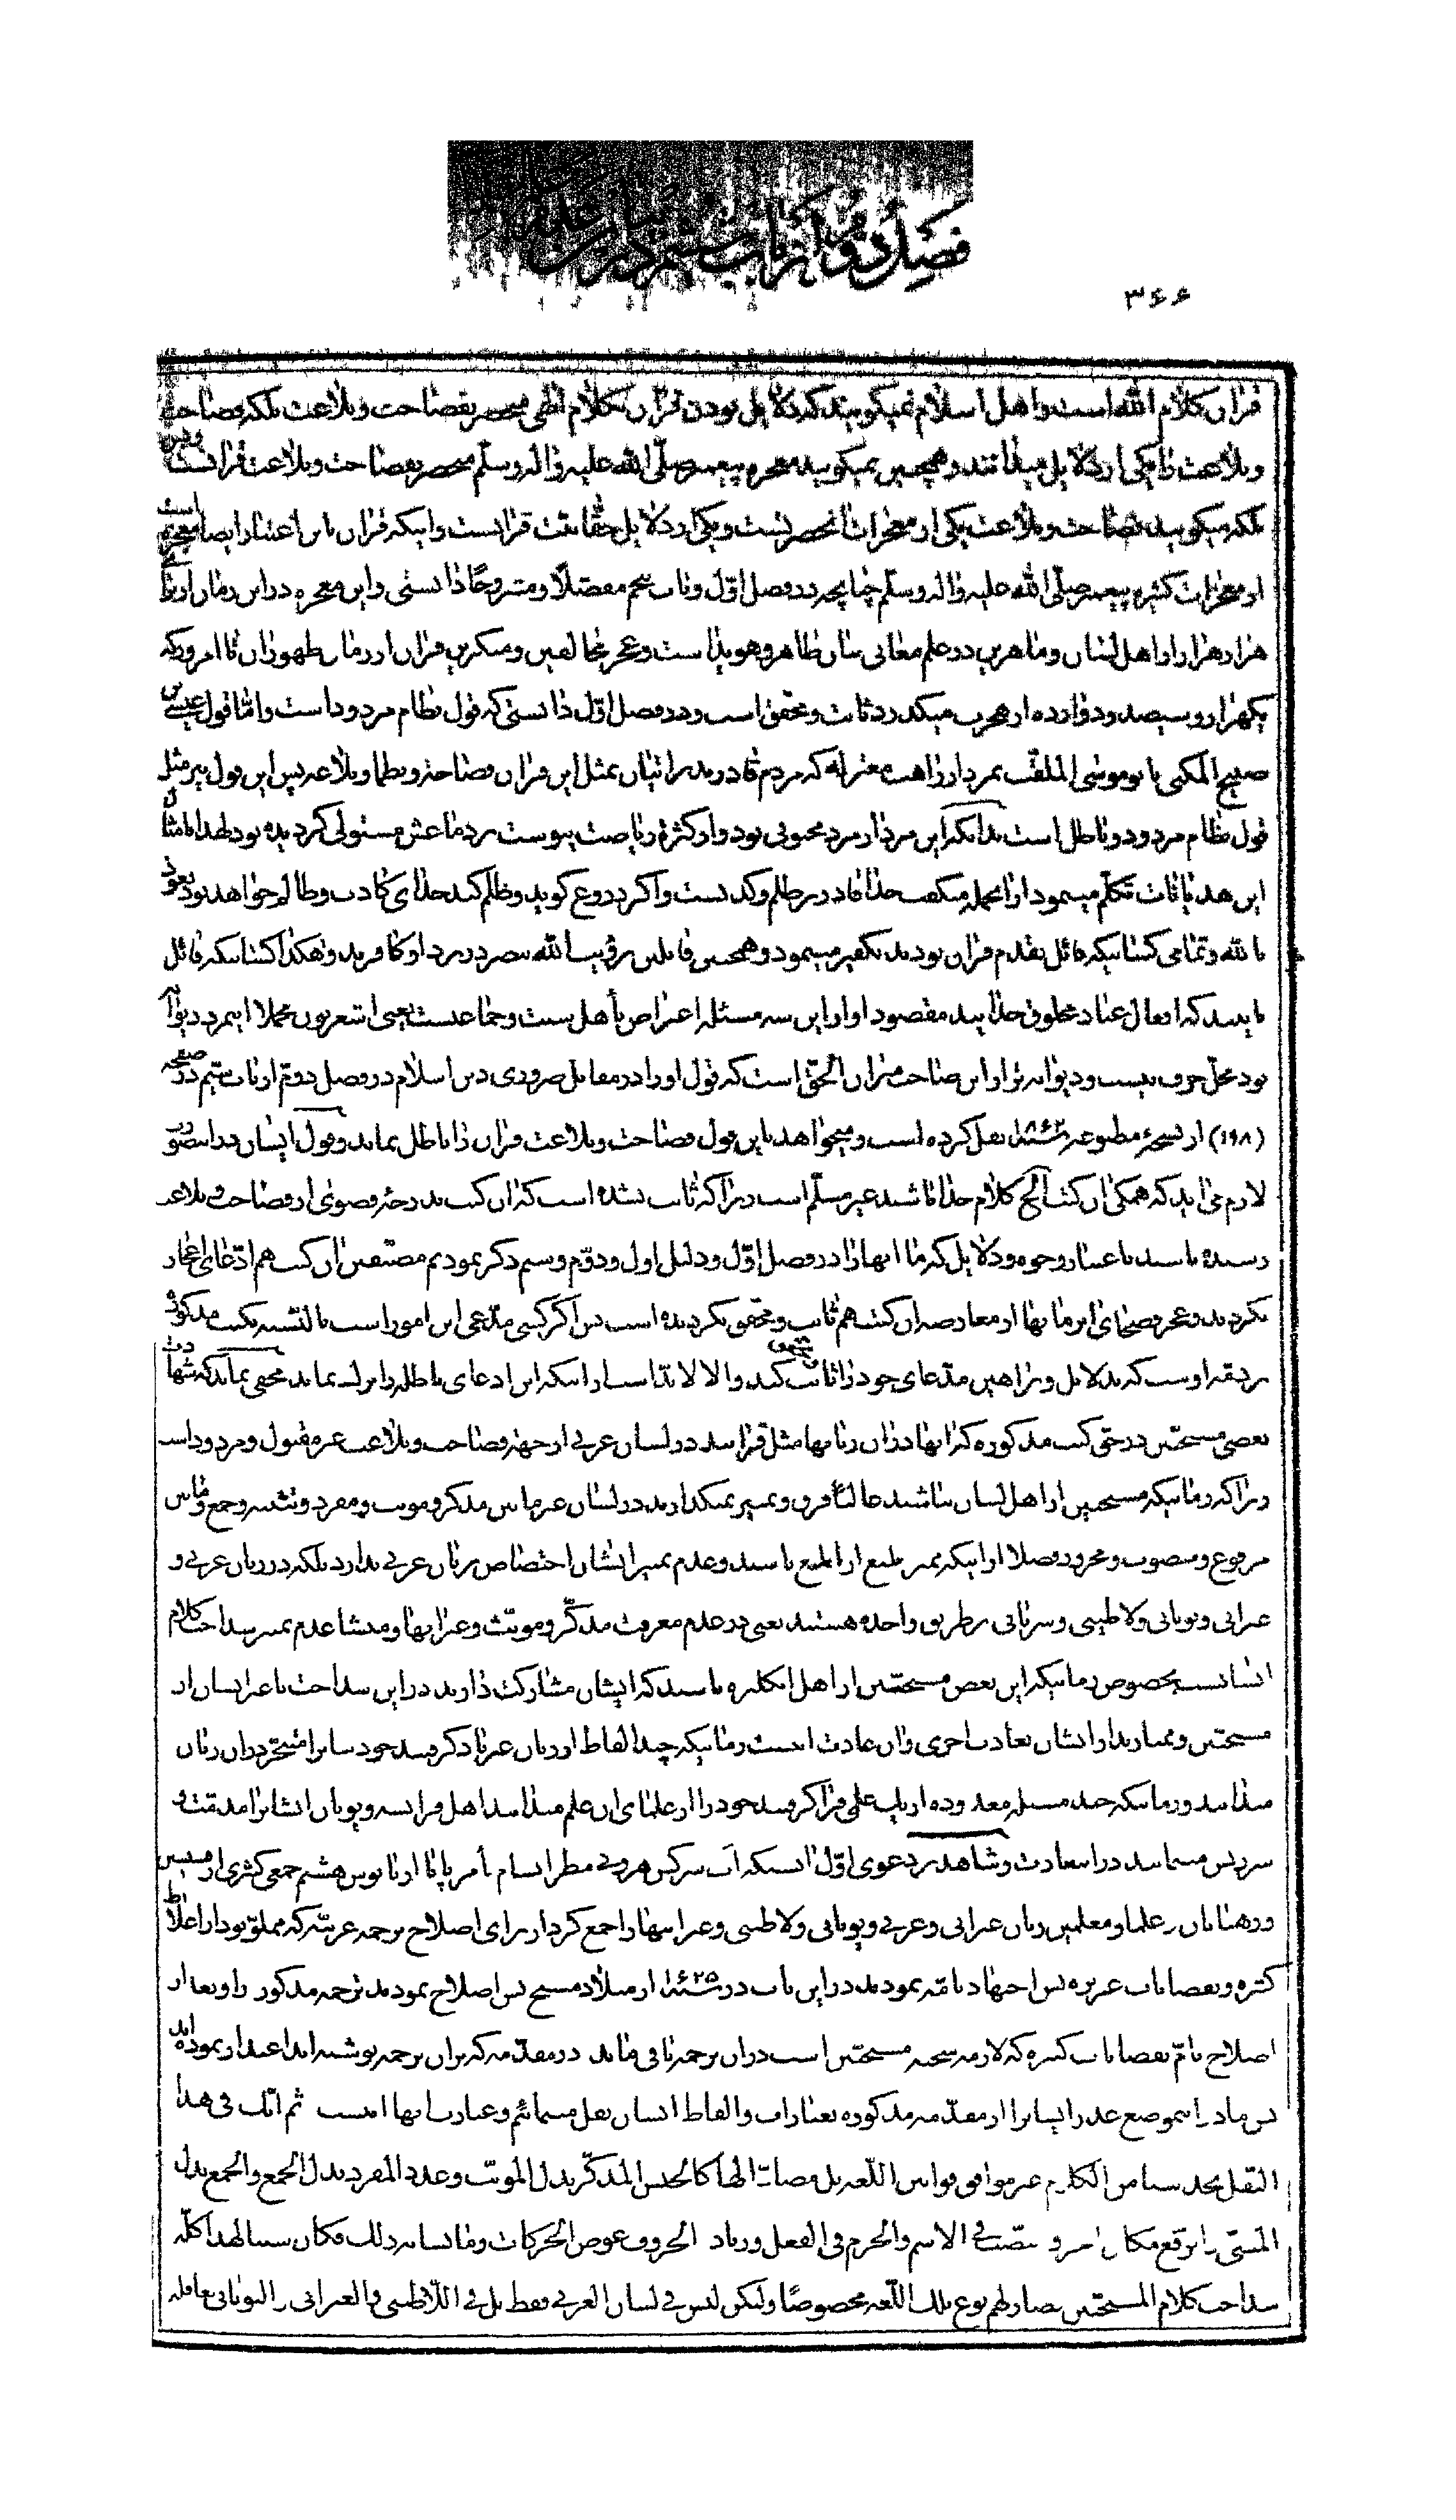 فصل دوم از باب ششم در بیان
۳۶۶
قرآن کلام الله است و اهل اسلام نمیگویند که دلایل بودن قرآن کلام الهی منحصر بفصاحت و بلاغت بلکه فصاحت
و بلاغت را یکی از دلایل میدانند و همچنین نمیگویند معجزه پیغمبر صلّی الله علیه و آله و سلّم منحصر بفصاحت و بلاغت قرآنست
بلکه میگویند فصاحت و بلاغت یکی از معجزات آنحضرتست و یکی از دلایل حقّانیّت قرآنست و اینکه قرآن باین اعتبار ایضا معجزه است
از معجزات کثیره پیغمبر صلّی الله علیه و آله و سلّم چنانچه در فصل اوّل و باب پنجم مفصّلاً و مشروحاً دانستی و این معجزه در این زمان از برای
هزار هزار از اهل لسان و ماهرین در علم معانی بیان ظاهر و هویدا است و عجز مخالفین و منکرین قرآن از زمان ظهور آن تا امروز که
یکهزار و سیصد و دوازده از هجرت میگذرد ثابت و محقق است و در فصل اوّل دانستی که قول نظام مردود است و امّا قول عیسی بن
صبیح المکنی بابو موسی الملقّب بمردار راهب معتزله که مردم قادرند بر اتیان بمثل این قرآن فصاحة و نظما و بلاغة پس این قول نیز مثل
قول نظام مردود و باطل است بدانکه این مردار مرد مجنونی بود و از کثرة ریاضت یبوست بر دماغش مستولی گردیده بود لهذا بامثال
این هذیانات تکلّم مینمود از انجمله میگفت خدا قادر بر ظلم و کذبست و اگر دروغ گوید و ظلم کند خدای کاذب و ظالم خواهد بود نعوذ
بالله و تمامی کسانیکه قائل بقدم قرآن بودند تکفیر مینمود و همچنین قایلین برؤیت الله ببصر در نزد او کافرند و هکذا کسانیکه قائل
باینند که افعال عباد مخلوق خدایند مقصود او از این سه مسئله اعتراض بأهل سنت و جماعتست یعنی اشعریون مجملا اینمرد دیوانه
بود محلّ حرف نیست و دیوانه‌تر از او این صاحب میزان الحقّ است که قول او را در مقابل ضروری دین اسلام در فصل دوّم از باب سیّم در صفحه
(۱۹۸) از نسخهٔ مطبوعه سنه ۱۸۶۲ نقل کرده است و میخواهد باین قول فصاحت و بلاغت قرآن را باطل نماید و قول ایشان در این صورت
لازم می‌آید که همگی آن کتب الخ کلام خدا باشد غیر مسلّم است زیرا که ثابت نشده است که آن کتب بدرجهٔ قصوی از فصاحت و بلاغت
رسیده باشند باعتبار وجوه و دلایل که ما آنها را در فصل اوّل و دلیل اول و دوّم و سیم ذکر نمودیم مصنّفین آن کتب هم ادّعای اعجاز
نکردند و عجز فصحای این زمانها از معارضه آن کتب هم ثابت و محقق نگردیده است پس اگر کسی مدّعی این امور است بالنّسبه بکتب مذکوره
بر ذمه اوست که بدلایل و براهین مدّعای خود را ثابت کند و الا لابدّ است از اینکه این ادعای باطله را ترک نماید مخفی نماند که شهادت
بعضی مسیحیّین در حق کتب مذکوره که اینها در آن زبانها مثل قرآنند در لسان عربی از جهة فصاحت و بلاغت غیر مقبول و مردود است
زیرا که زمانیکه مسیحیین از اهل لسان نباشند غالباً فرق و تمییز نمیگذارند در لسان غیر مابین مذکر و مونث و مفرد و تثنیه و جمع و مابین
مرفوع و منصوب و مجرور فضلا از اینکه تمیز بلیغ از ابلغ باشند و عدم تمییز ایشان اختصاص بزبان عربی ندارد بلکه در زبان عربی و
عبرانی و یونانی و لاطینی و سریانی بر طریق واحده هستند یعنی در عدم معرفت مذکّر و مونّث و غیر اینها و منشا عدم تمییز سذاجت کلام
ایشانست بخصوص زمانیکه این بعض مسیحیّین از اهل انکلتره باشند که ایشان مشارکت دارند در این سذاجت با غیر ایشان از
مسیحیّین و ممتازند از ایشان بعادت اخری و آن عادت اینست زمانیکه چند الفاظ از زبان عربی یاد گرفتند خودشان را متبحّر در آن زبان
میدانند و زمانیکه چند مسئله معدوده از یک علمی فرا گرفتند خود را از علمای آن علم میدانند اهل فرانسه و یونان ایشانرا مذمّت و
سرزنش مینمایند در این عادت و شاهد بر دعوی اوّل اینستکه اب سرکیس هرونی مطران شام بأمر پاپا اربانوس هشتم جمعی کثیری از قسیسین
و رهبانان و علما و معلمین زبان عبرانی و عربی و یونانی و لاطینی و غیر اینها را جمع کرد از برای اصلاح ترجمه عربیّه که مملوّ بود از اغلاط
کثیره و نقصانات غزیره پس اجتهاد تامّه نمودند در این باب در سنه ۱۶۲۵ از میلاد مسیح پس اصلاح نمودند ترجمه مذکور را و بعد از
اصلاح تامّ نقصانات کثیره که لازمه سجیه مسیحیّین است در آن ترجمه باقی ماند در مقدّمه که بر آن ترجمه نوشته‌اند اعتذار نموده‌اند
پس ما در این موضع عذر ایشانرا از مقدّمه مذکوره بعبارات و الفاظ ایشان نقل مینمائیم و عبارت اینها اینست ثم انّک فی هذا
النّقل تجد شیئا من الکلام غیر موافق قوانین اللّغة بل مضادّا لها کالجنس المذکّر بدل المونّث و عدد المفرد بدل الجمع و الجمع بدل
المثنّی و الرّفع مکان الجر و النّصب فی الاسم و الجزم فی الفعل و زیادة الحروف عوض الحرکات و ما شابه ذلک فکان سببا لهذا کلّه
سذاجت کلام المسیحیّین فصار لهم نوع تلک اللّغة مخصوصًا ولکن لیس فی لسان العربی فقط بل فی اللّاطینی و العبرانی و الیونانی تغافلت